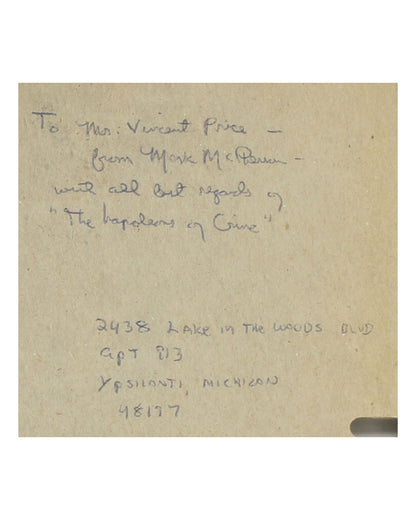 To Mr. Vincent Price —
from Mark McPherson —
with all best regards of
"The Napoleons of Crime"
2438 LAKE IN THE WOODS BLVD
APT 813
YPSILANTI, MICHIGAN
48197